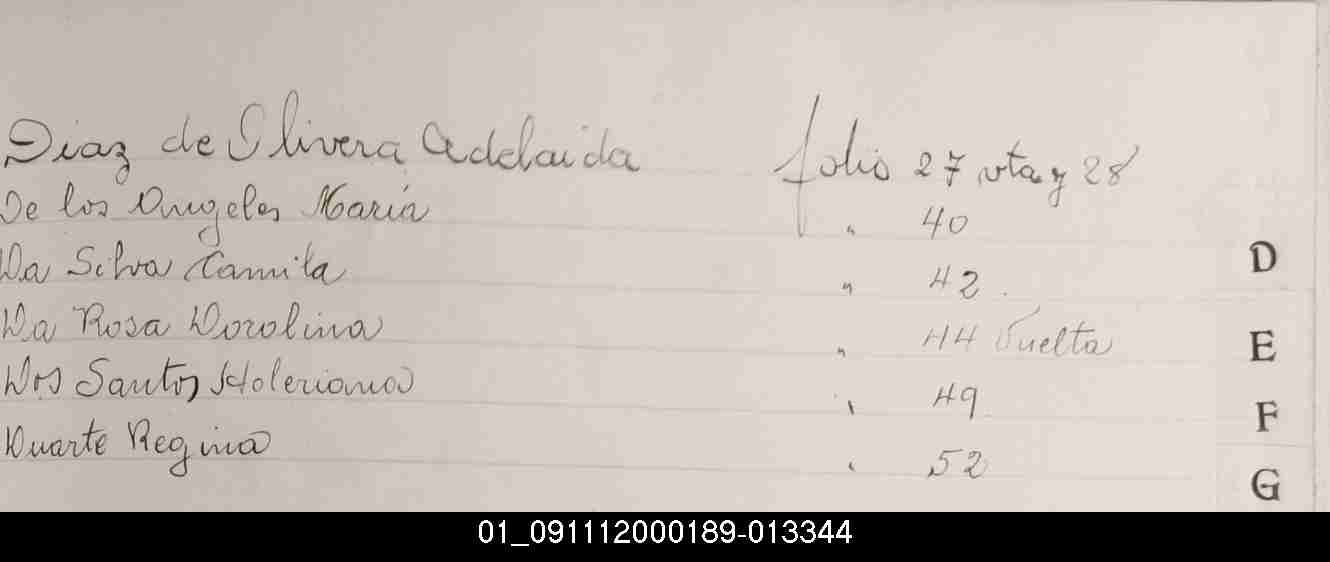 Diaz de Olivera Adelaida folio 27 vta y 28
De los Angeles Maria " 40
Da Silva Camila " 42.
Da Rosa Dorolina " 44 Vuelta
Dos Santos " 49
Duarte Regina " 52
D
E
F
G
01_091112000189-013344